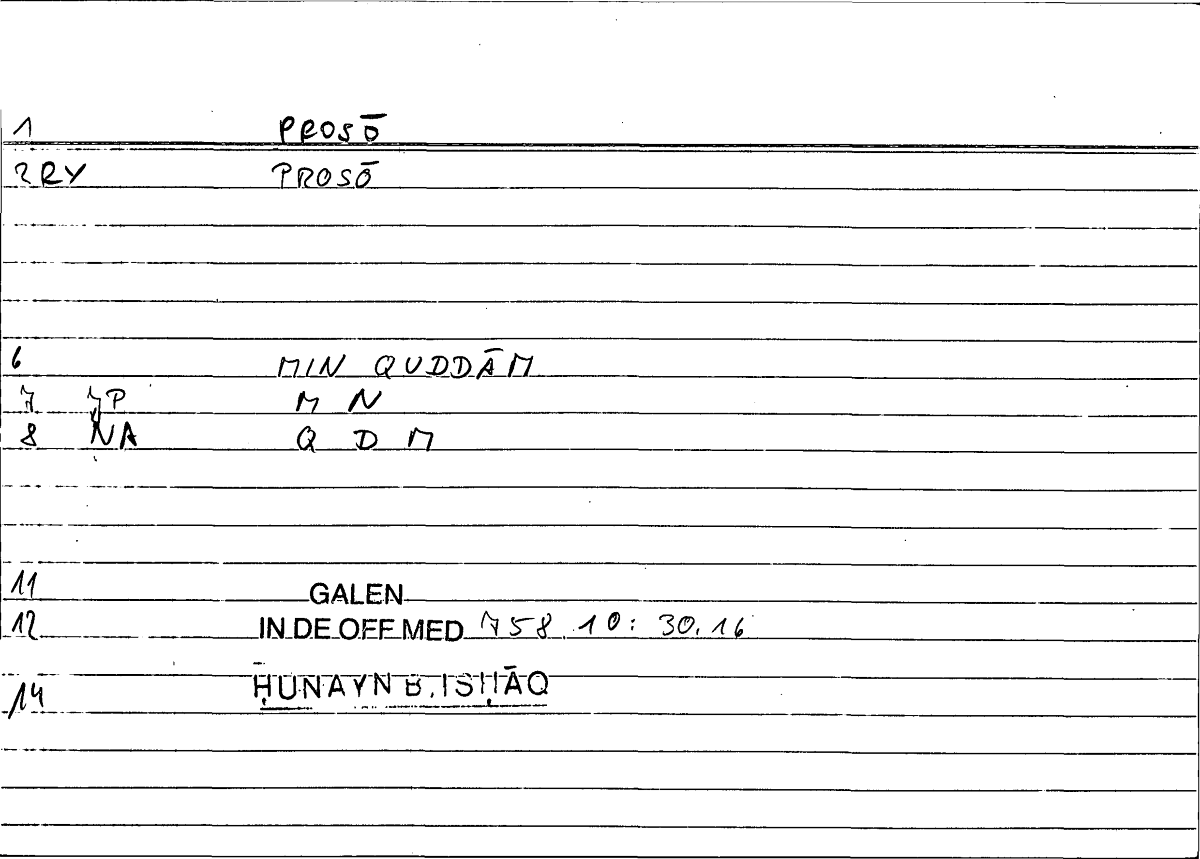 1 PROSŌ
2 RY PROSŌ
6 MIN QUDDĀM
7 JP M N
8 NA Q D M
11 GALEN
12 IN DE OFF MED 758 10: 30.16
14 ḤUNAYN B. ISḤĀQ